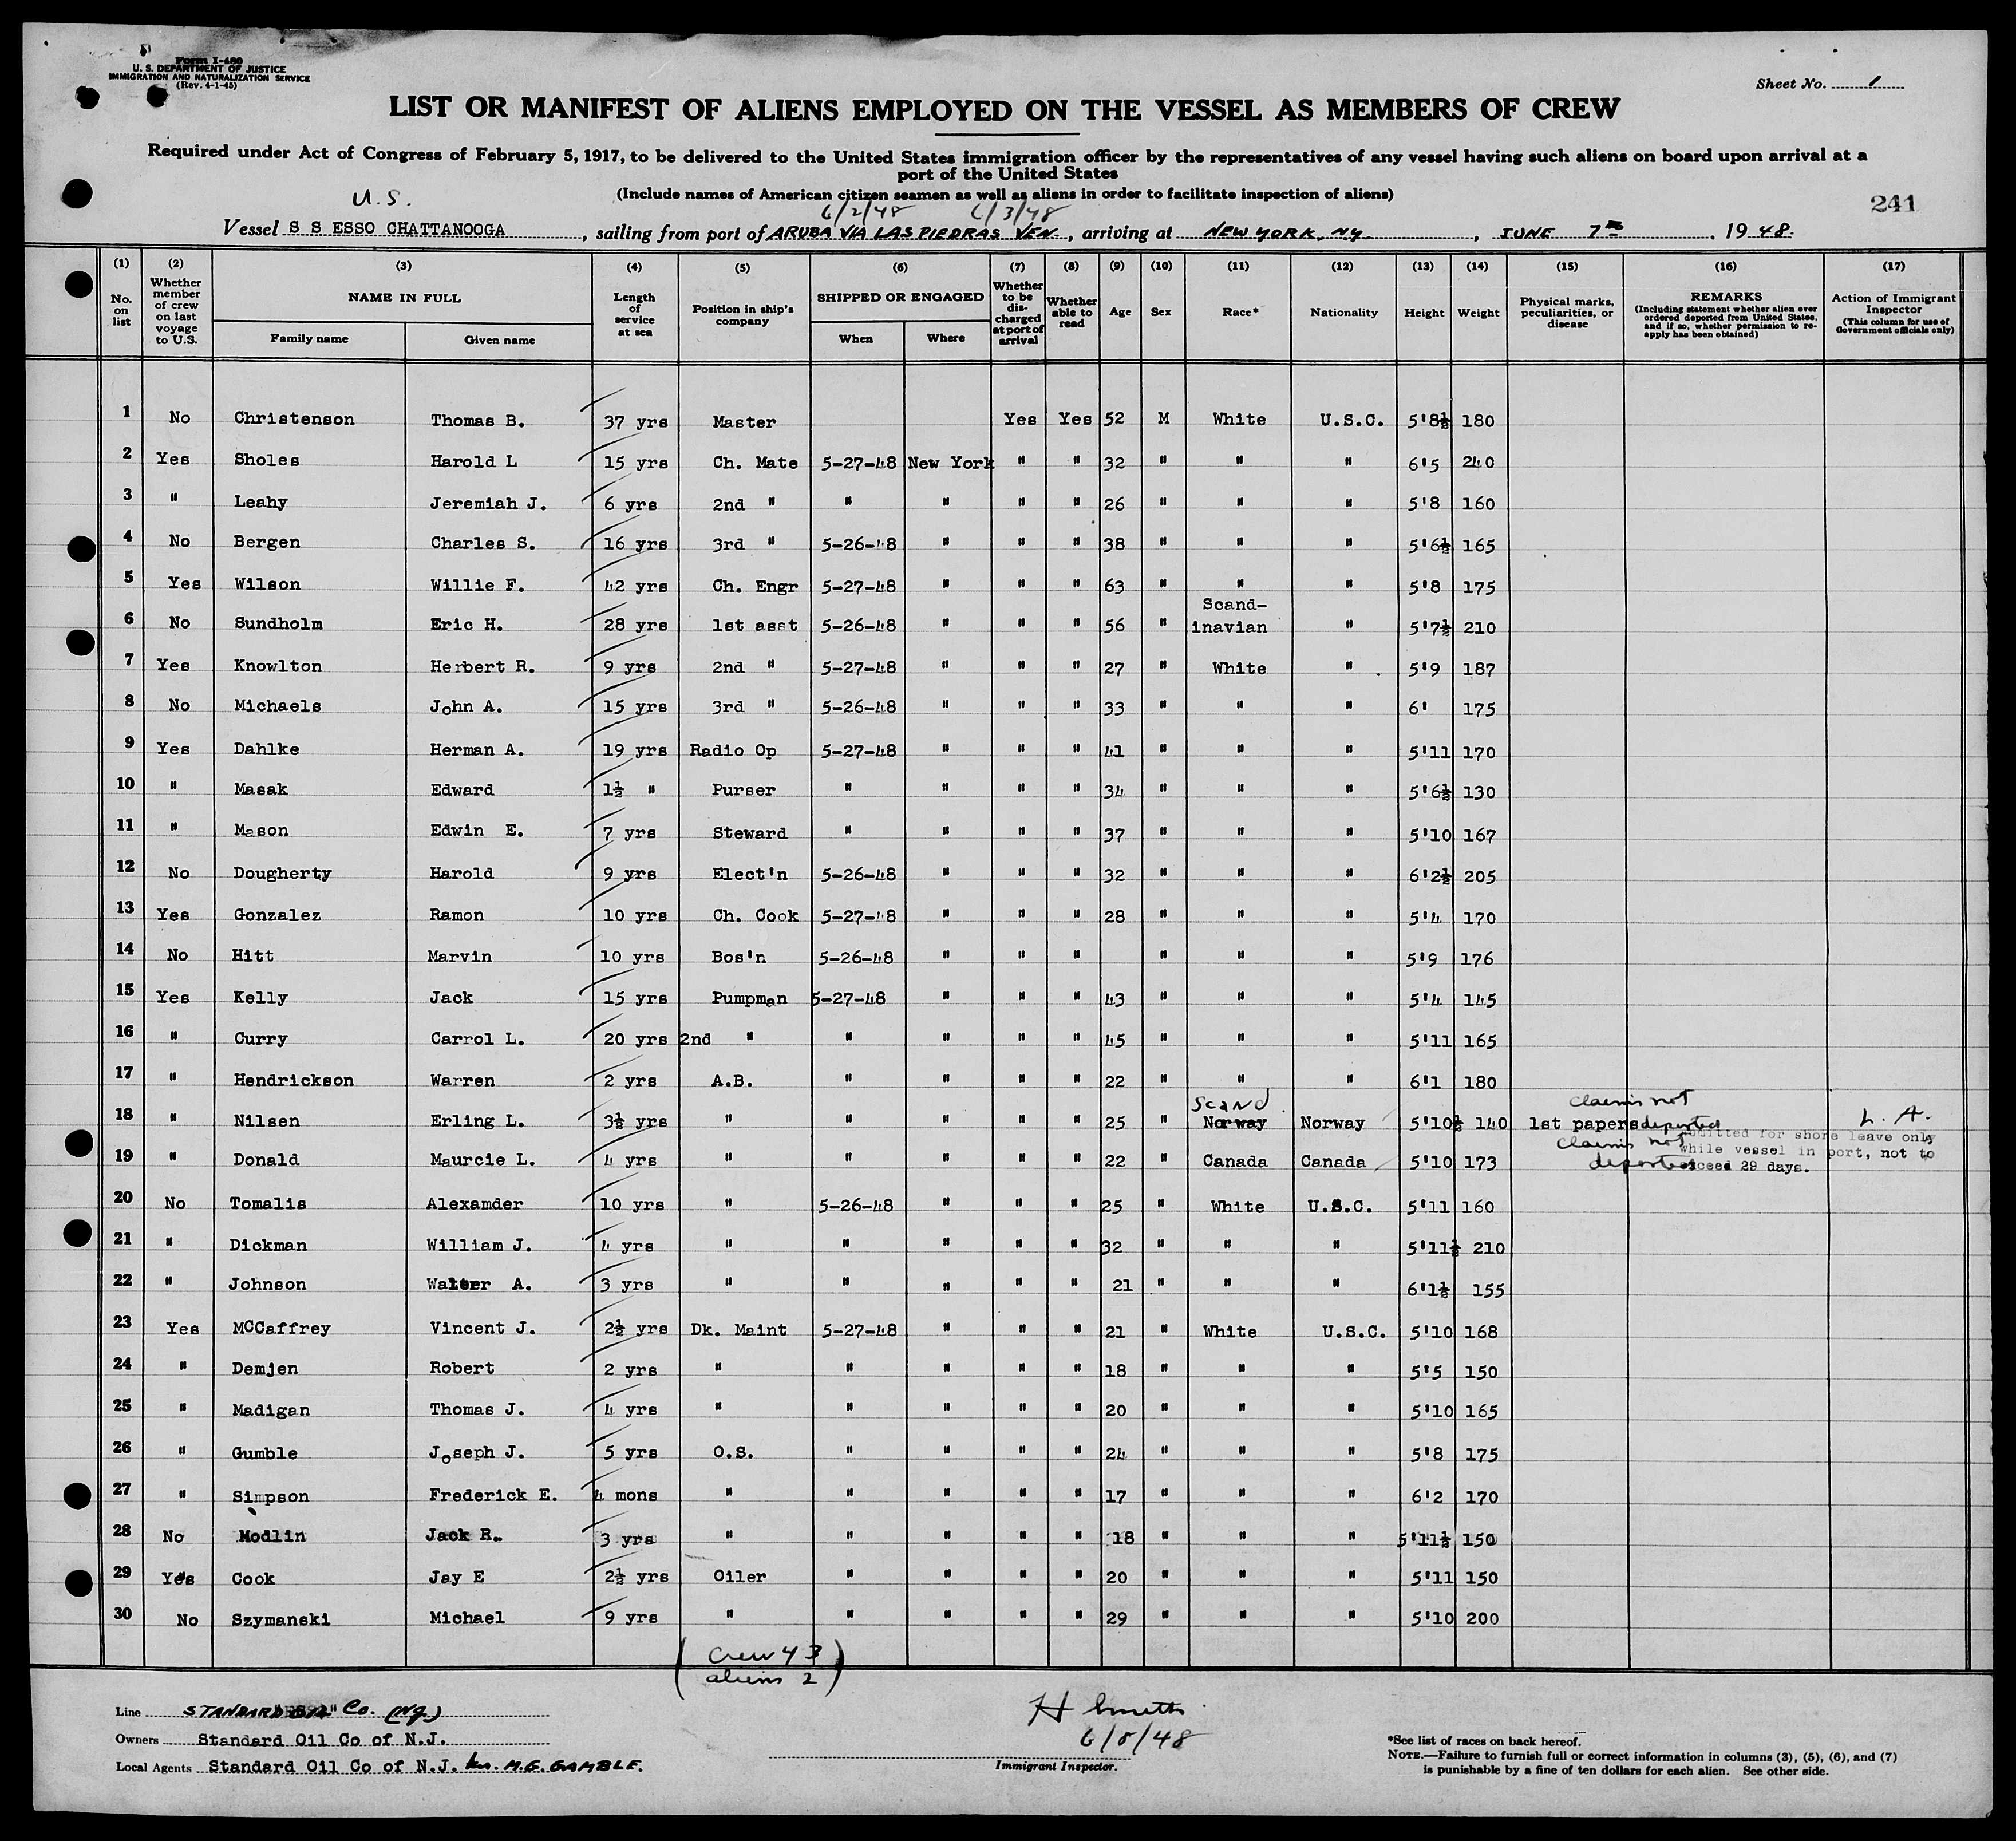 Form I-480
U. S. DEPARTMENT OF JUSTICE
IMMIGRATION AND NATURALIZATION SERVICE
(Rev. 4-1-45)
Sheet No. 1
LIST OR MANIFEST OF ALIENS EMPLOYED ON THE VESSEL AS MEMBERS OF CREW
Required under Act of Congress of February 5, 1917, to be delivered to the United States immigration officer by the representatives of any vessel having such aliens on board upon arrival at a
port of the United States
(Include names of American citizen seamen as well as aliens in order to facilitate inspection of aliens)
241
U.S. 6/2/48 6/3/48
Vessel S S ESSO CHATTANOOGA, sailing from port of ARUBA VIA LAS PIEDRAS VEN., arriving at NEW YORK, NY., JUNE 7th, 1948.
(1) (2) (3) (4) (5) (6) (7) (8) (9) (10) (11) (12) (13) (14) (15) (16) (17)
No. on list
Whether member of crew on last voyage to U.S.
NAME IN FULL
Family name Given name
Length of service at sea
Position in ship's company
SHIPPED OR ENGAGED
When Where
Whether to be discharged at port of arrival
Whether able to read
Age Sex Race* Nationality Height Weight
Physical marks, peculiarities, or disease
REMARKS
(Including statement whether alien ever ordered deported from United States, and if so, whether permission to re-apply has been obtained)
Action of Immigrant Inspector
(This column for use of Government officials only)
1 No Christenson Thomas B. 37 yrs Master Yes Yes 52 M White U.S.C. 5'8½ 180
2 Yes Sholes Harold L 15 yrs Ch. Mate 5-27-48 New York " " 32 " " " 6'5 240
3 " Leahy Jeremiah J. 6 yrs 2nd " " " " " 26 " " " 5'8 160
4 No Bergen Charles S. 16 yrs 3rd " 5-26-48 " " " 38 " " " 5'6½ 165
5 Yes Wilson Willie F. 42 yrs Ch. Engr 5-27-48 " " " 63 " " " 5'8 175
6 No Sundholm Eric H. 28 yrs 1st asst 5-26-48 " " " 56 " Scand-inavian " 5'7½ 210
7 Yes Knowlton Herbert R. 9 yrs 2nd " 5-27-48 " " " 27 " White " 5'9 187
8 No Michaels John A. 15 yrs 3rd " 5-26-48 " " " 33 " " " 6' 175
9 Yes Dahlke Herman A. 19 yrs Radio Op 5-27-48 " " " 41 " " " 5'11 170
10 " Masak Edward 1½ " Purser " " " " 34 " " " 5'6½ 130
11 " Mason Edwin E. 7 yrs Steward " " " " 37 " " " 5'10 167
12 No Dougherty Harold 9 yrs Elect'n 5-26-48 " " " 32 " " " 6'2½ 205
13 Yes Gonzalez Ramon 10 yrs Ch. Cook 5-27-48 " " " 28 " " " 5'4 170
14 No Hitt Marvin 10 yrs Bos'n 5-26-48 " " " " " " 5'9 176
15 Yes Kelly Jack 15 yrs Pumpman 5-27-48 " " " 43 " " " 5'4 145
16 " Curry Carrol L. 20 yrs 2nd " " " " " 45 " " " 5'11 165
17 " Hendrickson Warren 2 yrs A.B. " " " " 22 " " " 6'1 180
Scand claims not
18 " Nilsen Erling L. 3½ yrs " " " " " 25 " Norway Norway 5'10½ 140 1st papers deported L. A.
claims not admitted for shore leave only
while vessel in port, not to
19 " Donald Maurcie L. 4 yrs " " " " " 22 " Canada Canada 5'10 173 deported exceed 29 days.
20 No Tomalis Alexamder 10 yrs " 5-26-48 " " " 25 " White U.S.C. 5'11 160
21 " Dickman William J. 4 yrs " " " " " 32 " " " 5'11½ 210
22 " Johnson Walter A. 3 yrs " " " " " 21 " " " 6'1½ 155
23 Yes McCaffrey Vincent J. 2½ yrs Dk. Maint 5-27-48 " " " 21 " White U.S.C. 5'10 168
24 " Demjen Robert 2 yrs " " " " " 18 " " " 5'5 150
25 " Madigan Thomas J. 4 yrs " " " " " 20 " " " 5'10 165
26 " Gumble Joseph J. 5 yrs O.S. " " " " 24 " " " 5'8 175
27 " Simpson Frederick E. 4 mons " " " " " 17 " " " 6'2 170
28 No Modlin Jack R. 3 yrs " " " " " 18 " " " 5'11½ 150
29 Yes Cook Jay E 2½ yrs Oiler " " " " 20 " " " 5'11 150
30 No Szymanski Michael 9 yrs " " " " " 29 " " " 5'10 200
(Crew 43
aliens 2)
Line STANDARD OIL Co. (NJ.)
Owners Standard Oil Co of N.J.
Local Agents Standard Oil Co of N.J. M.G. GAMBLE.
H Smith
6/8/48
Immigrant Inspector.
*See list of races on back hereof.
NOTE.—Failure to furnish full or correct information in columns (3), (5), (6), and (7)
is punishable by a fine of ten dollars for each alien. See other side.